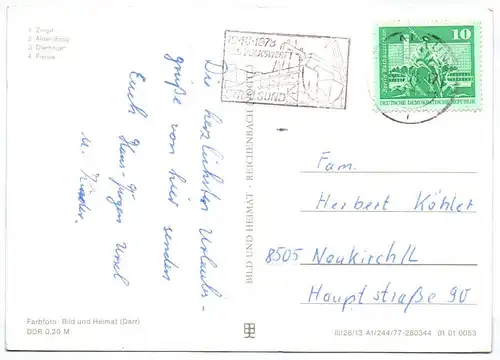 1 Zingst
2 Ahrenshoop
3 Dierhagen
4 Prerow
1948-1978
VOLKSWERFT
STRALSUND
10
DEUTSCHE DEMOKRATISCHE REPUBLIK
Die herzlichsten Urlauber-
grüße von hier senden
Euch Hans-Jürgen Ursel
u. Kinder.
BILD UND HEIMAT · REICHENBACH (VOGTL)
Fam.
Herbert Köhler
8505 Neukirch/L
Hauptstraße 90
Farbfoto: Bild und Heimat (Darr)
DDR 0,20 M
III/26/13 A1/244/77-280344 01 01 0053